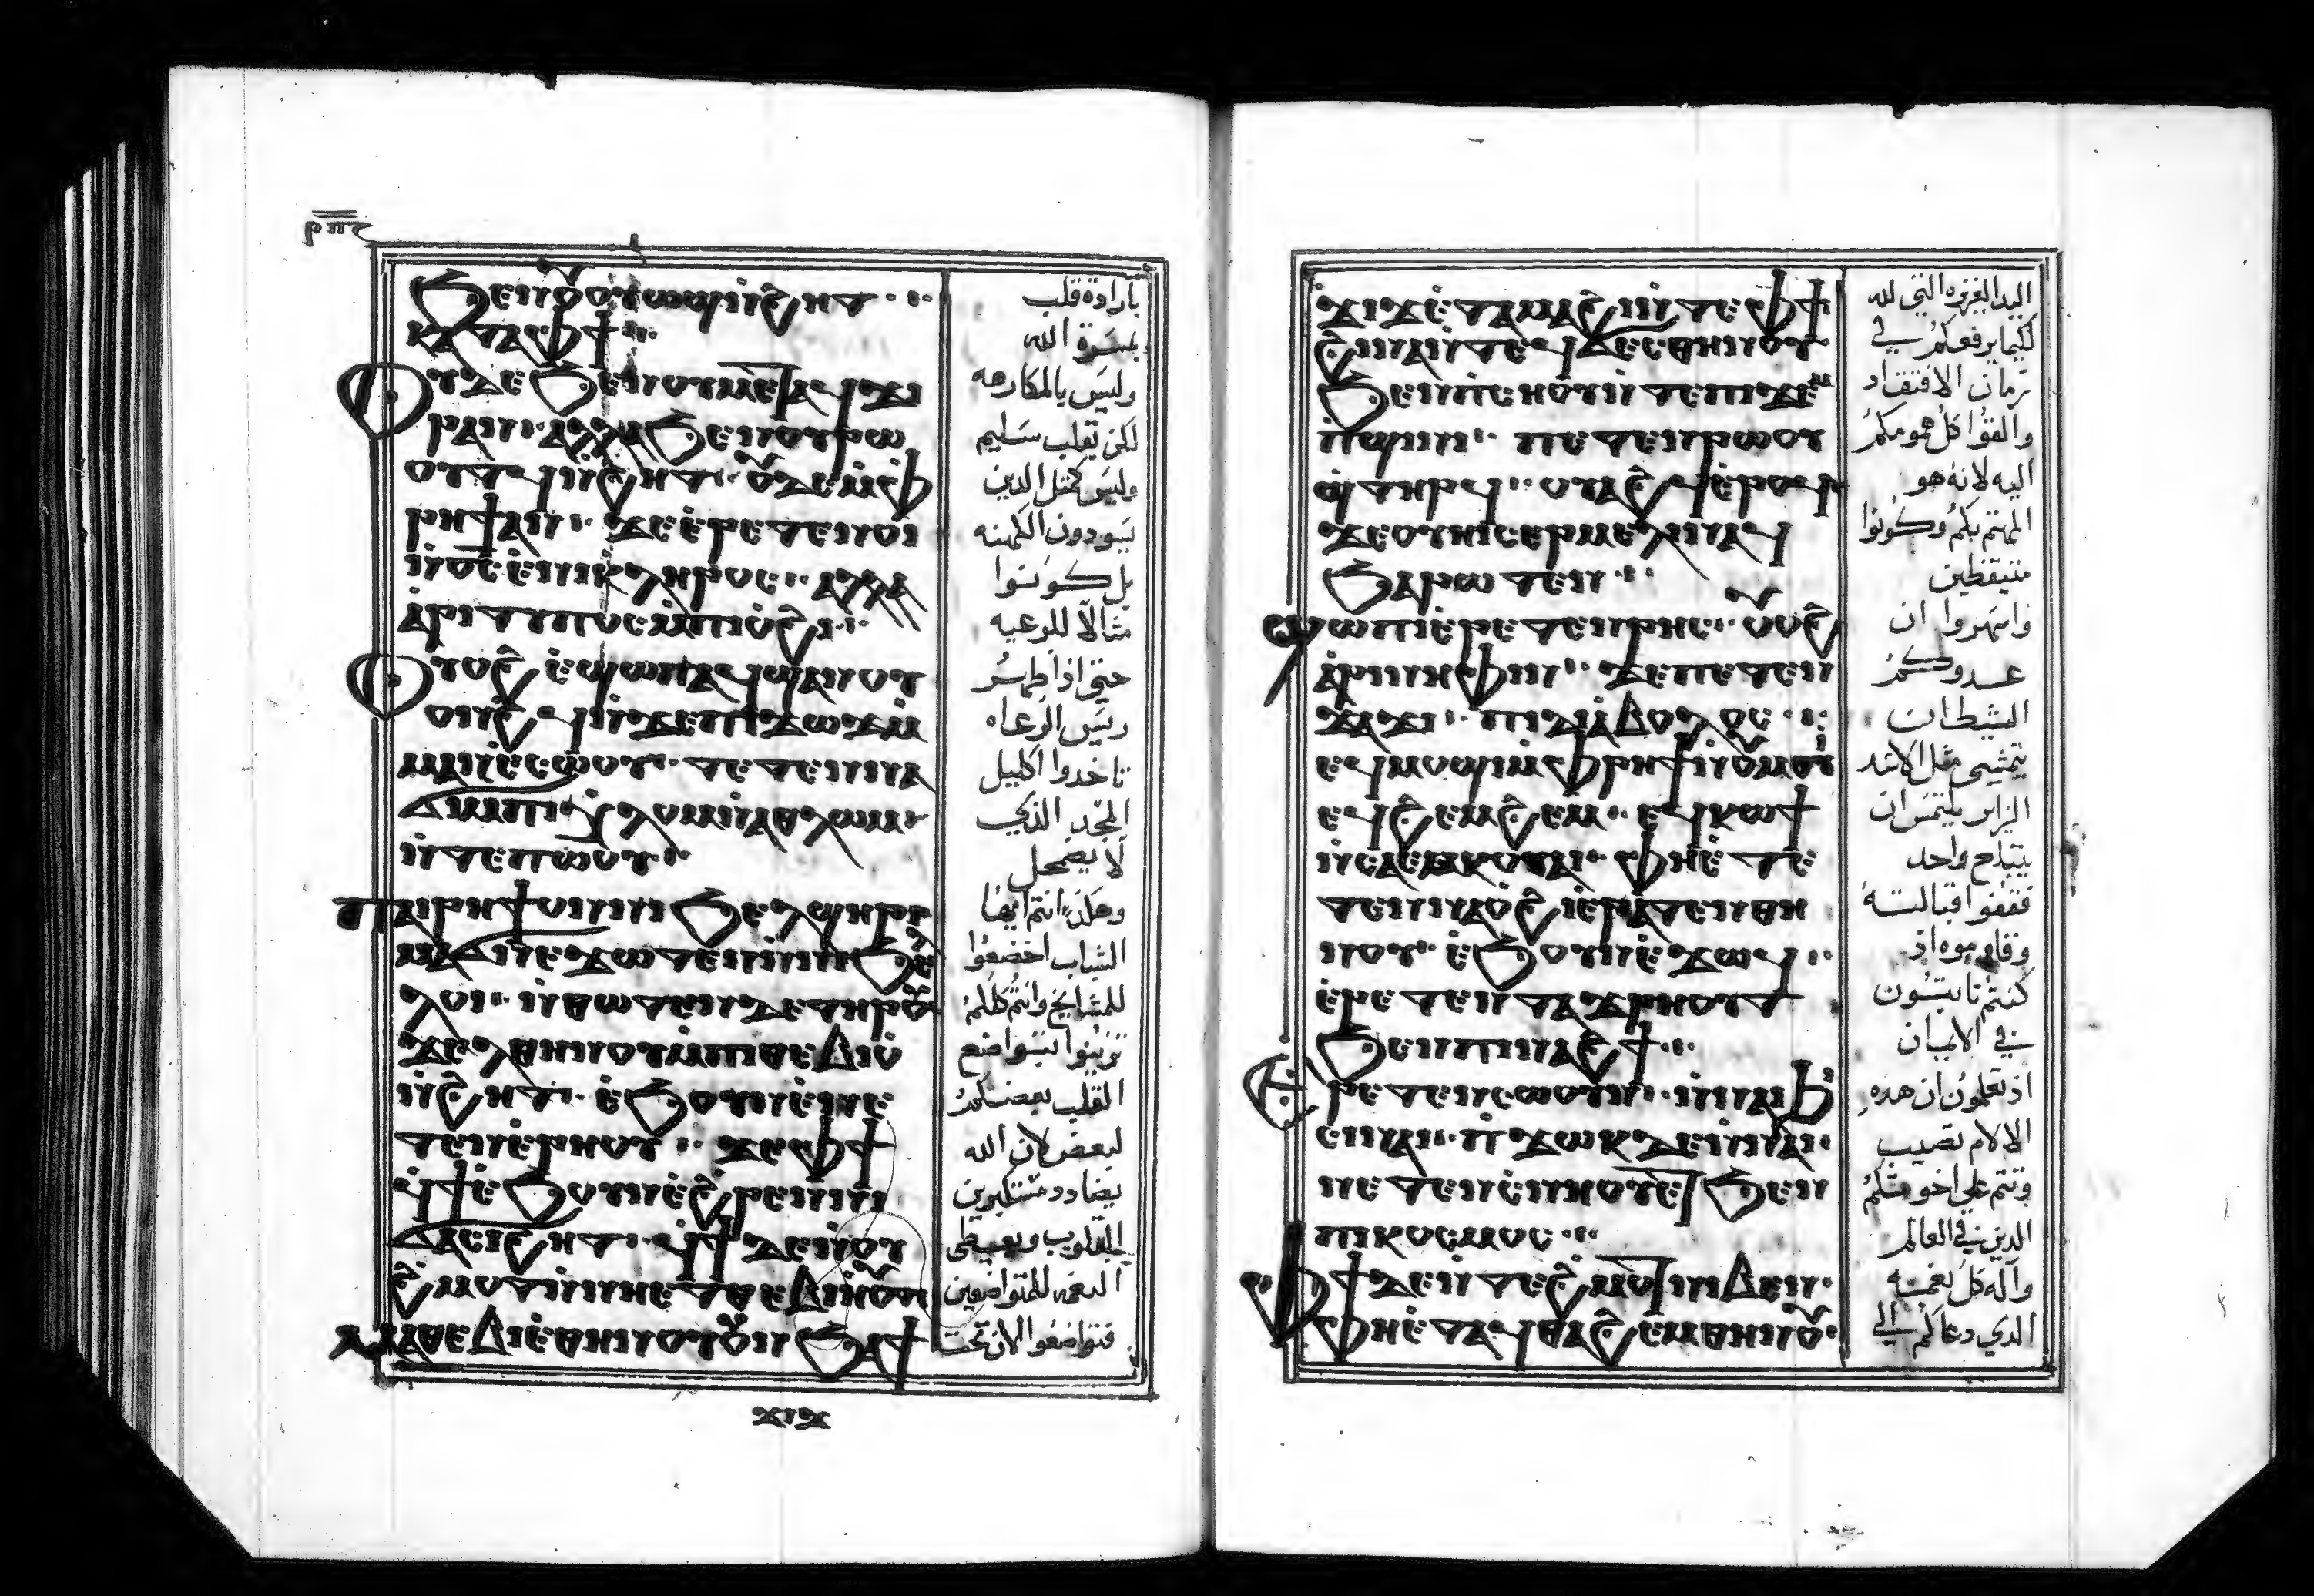 ϧⲉⲛⲟⲩⲟⲩⲱϣⲛ̀ϩⲏⲧ
ⲕⲁⲧⲁⲫϯ
ⲟⲩⲇⲉϧⲉⲛⲟⲩⲙⲉⲧⲁϥϫⲓ
ⲣⲁⲛ ⲁⲗⲗⲁϧⲉⲛⲟⲩⲣⲱ
ⲟⲩⲧϥⲛ̀ϩⲏⲧ ⲟⲩⲇⲉⲙ̀ⲫ
ⲣⲏϯⲁⲛ ϫⲉⲉ̀ⲣⲉⲧⲉⲛⲟⲓ
ⲛ̀ⲟ̅ⲥ̅ⲉ̀ⲛⲓⲕⲗⲏⲣⲟⲥ ⲁⲗⲗⲁ
ⲁ̀ⲣⲓⲧⲩⲡⲟⲥⲙ̀ⲡⲓⲟ̀ϩⲓ
ⲟⲩⲟϩ ⲉ̀ϣⲱⲡⲁϥϣⲁⲛⲟⲩ
ⲟⲛϩϥⲛ̀ϫⲉⲡⲓϫⲱϫⲙ̀
ⲙⲁⲛⲉ̀ⲥⲱⲟⲩ ⲧⲉⲧⲉⲛⲛⲁ
ϭⲓⲙⲡⲓⲭⲗⲟⲙⲛ̀ⲁⲑⲗⲱⲙ
ⲛ̀ⲧⲉⲡⲱⲟⲩ
ⲡⲁⲓⲣⲏϯⲟⲛⲛⲓϧⲉⲗϣⲏⲣⲓ
ⲙⲁϭⲛⲉϫⲱⲧⲉⲛⲛ̀ⲛⲓϧⲉ
ⲗⲟⲓ ⲛ̀ⲑⲱⲧⲉⲛⲇⲉⲧⲏⲣⲟⲩ
ϫⲉⲗⲑⲏⲛⲟⲩⲙ̀ⲡⲓⲑⲉⲃⲓⲟ̀
ⲛ̀ϩⲏⲧ ⲉ̀ϧⲟⲩⲛⲉ̀ⲛⲉ
ⲧⲉⲛⲉ̀ⲣⲏⲟⲩ ϫⲉⲫϯ
ϥϯⲉ̀ϧⲟⲩⲛⲉ̀ϩⲣⲉⲛⲛⲓ
ϭⲁⲥⲓϩⲏⲧ ϥϯⲇⲉⲛ̀ⲟⲩ
ϩ̀ⲙⲟⲧⲛ̀ⲛⲏⲉⲧⲑⲉⲃⲓⲏⲟⲩⲧ
ⲙⲁⲑⲉⲃⲓⲉ̀ⲑⲏⲛⲟⲩⲟⲩⲛ ϧⲁⲧ
بارادة قلب
بمسرة الله
وليس بالمكارهه
لكن بقلب سليم
وليس كمثل الدين
يسودون الكهنه
بل كونوا
مثالا للرعيه
حتي اذا ظهر
ريس الرعاه
تاخدوا اكليل
المجد الذي
لا يضمحل
وهكذا انتم ايضا
الشباب اخضعوا
للمشايخ وانتم كلكم
تزينوا بتواضع
القلب بعضكم
لبعض لان الله
يضادد متكبرين
القلوب ويعطي
النعمه للمتواضعين
فتواضعوا الان تحت
ϫⲓϫⲉ̀ⲧⲁⲙⲁϩⲓⲛ̀ⲧⲉⲫϯ
ϩⲓⲛⲁⲛ̀ⲧⲉϥϭⲉⲥⲑⲏⲛⲟⲩ
ϧⲉⲛⲡⲥⲏⲟⲩⲛ̀ⲧⲉⲡⲓϫⲉⲙ
ⲡ̀ϣⲓⲛⲓ ⲡⲉⲧⲉⲛⲣⲱⲟⲩ
ϣ̀ⲧⲏⲣϥ ⲟⲩⲁϩϥⲉ̀ⲣⲟϥ
ϫⲉⲟⲩⲏⲓⲥⲉⲣⲙⲉⲗⲓⲛⲁϥ
ϧⲁⲣⲱⲧⲉⲛ
ϣⲱⲡⲓⲉ̀ⲣⲉⲧⲉⲛⲣⲏⲥ ⲟⲩⲟϩ
ⲁ̀ⲣⲓⲛⲏⲫⲓⲛ ϫⲉⲡⲉⲧⲉⲛ
ϫⲁϫⲓ ⲡⲓⲇⲓⲁ̀ⲃⲟⲗⲟⲥ
ⲉϥⲙⲟϣⲓⲙ̀ⲫⲣⲏϯⲛ̀ⲟⲩⲙⲟⲩⲓ̀
ⲉϥϩⲉⲙϩⲉⲙ ⲉϥⲕⲱϯ
ⲛ̀ⲥⲁⲉⲙⲕⲟⲩⲁⲓ ⲫⲏⲉ̀ⲧⲉ
ⲧⲉⲛⲛⲁⲟ̀ϩⲓⲉ̀ⲣⲁⲧⲉⲛⲑⲏ
ⲛⲟⲩ ⲉ̀ϧⲟⲩⲛⲉ̀ϫⲱϥ
ⲉ̀ⲣⲉⲧⲉⲛⲧⲁϫⲣⲏⲟⲩⲧ
ϧⲉⲛⲡⲓⲛⲁϩϯ
ⲉ̀ⲣⲉⲧⲉⲛⲥⲱⲟⲩⲛ ⲛ̀ⲛⲁⲓⲙ̀
ⲕⲁⲩϩ ⲛ̀ϫⲱⲕⲇⲉⲛ̀ⲛⲁⲓ
ⲛⲉⲧⲉⲛⲥⲛⲏⲟⲩⲉⲧϧⲉⲛ
ⲡⲓⲕⲟⲥⲙⲟⲥ
ⲫϯⲇⲉⲛ̀ⲧⲉϩ̀ⲙⲟⲧⲛⲓⲃⲉⲛ
ⲫⲏⲉ̀ⲧⲁϥⲑⲁϩⲉⲙⲑⲏⲛⲟⲩ
اليد العزيزه التي لله
لكيما يرفعكم في
زمان الافتقاد
والقوا كل همومكم
اليه لانه هو
المهتم بكم وكونوا
متيقظين
واسهروا ان
عدوكم
الشيطان
يتمشي مثل الاسد
الزاير يلتمس ان
يبتلع واحد
فقفوا قبالته
وقاوموه اذ
كنتم تابتون
في الايمان
اذ تعلمون ان هده
الالام تصيب
وتتم علي اخوتكم
الدين في العالم
واله كل نعمه
الدي دعاكم الي